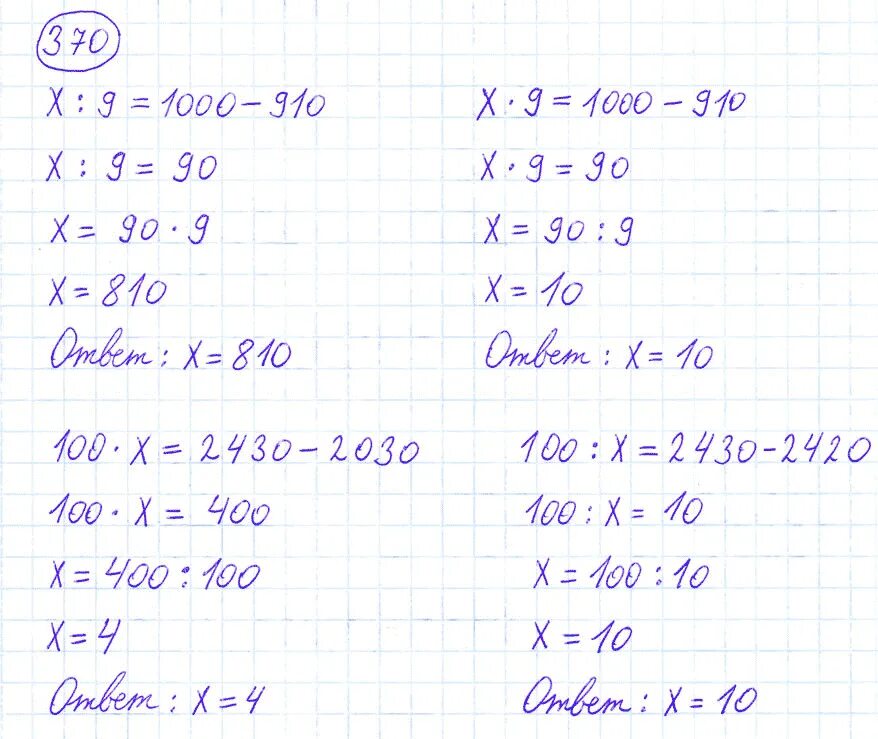 370
x : 9 = 1000 - 910
x : 9 = 90
x = 90 · 9
x = 810
Ответ : x = 810
x · 9 = 1000 - 910
x · 9 = 90
x = 90 : 9
x = 10
Ответ : x = 10
100 · x = 2430 - 2030
100 · x = 400
x = 400 : 100
x = 4
Ответ : x = 4
100 : x = 2430 - 2420
100 : x = 10
x = 100 : 10
x = 10
Ответ : x = 10